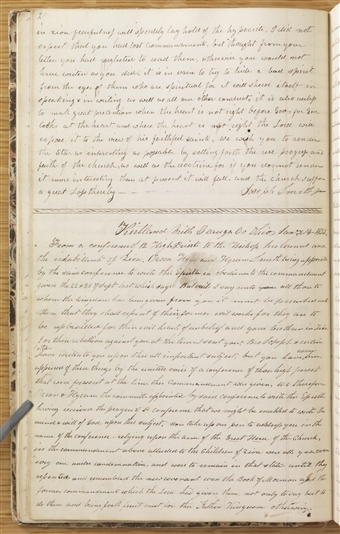 20
in zion fearful ness will speedily lay hold of the hypocrite. I did not
expect that you had lost commandments, but thought from your
letter you had neglected to read them, otherwise you would not
have written as you did it is in vain to try to hide a bad spirit
from the eyes of them who are spiritual for it will shew itself in
speaking & in writing as well as all our other conduct, it is also useless
to make great pretentions when the heart is not right before God, for God
looks at the heart and where the heart is not right the Lord will
expose it to the view of his faithful saints, We wish you to render
the Star as interesting as possable by setting forth the rise progress and
faith of the church, as well as the doctrine for if you do not render
it more interesting than at present it will fall, and the church suffer
a great Loss thereby —
Joseph Smith Jr
Kirtland Mills Geauga Co Ohio, Jan
From a conference of 12 High Priests to the Bishop his council and
the inhabitants of Zion, Orson Hyde and Hyrum Smith being appointed
by the said conference to write this Epistle in obedience to the commandment
given the 22 & 23d Sept last which says But verily I say unto you all those to
whom the kingdom has been given from you it must be preached unto
them that they shall repent of their former evil works for they are to
be upbraided for their evil heart of unbelief and your brethren in Zion
for their rebellion against you at the time I sent you, Br Joseph &
have written to you upon this all important subject, but you have
apprised of these things by the united voice of a conference of those high priests
that were present at the time this Commandment was given, We therefore
Orson & Hyrum the committee appointed by said conference to write this Epistle
having received the prayers of sd conference that we might be enabled to write the
mind & will of God upon this subject, now take up our pen to address you in the
name of the conference relying upon the arm of the Great Head of the Church,
in the commandment above alluded to the children of Zion were all yea even
every one under condemnation, and were to remain in that state until they
repented and remembered the new covenant even the Book of Mormon and the
former commandments which the Lord has given them not only to say but to
do them and bring forth fruit meet for the Father Kingdom otherwise